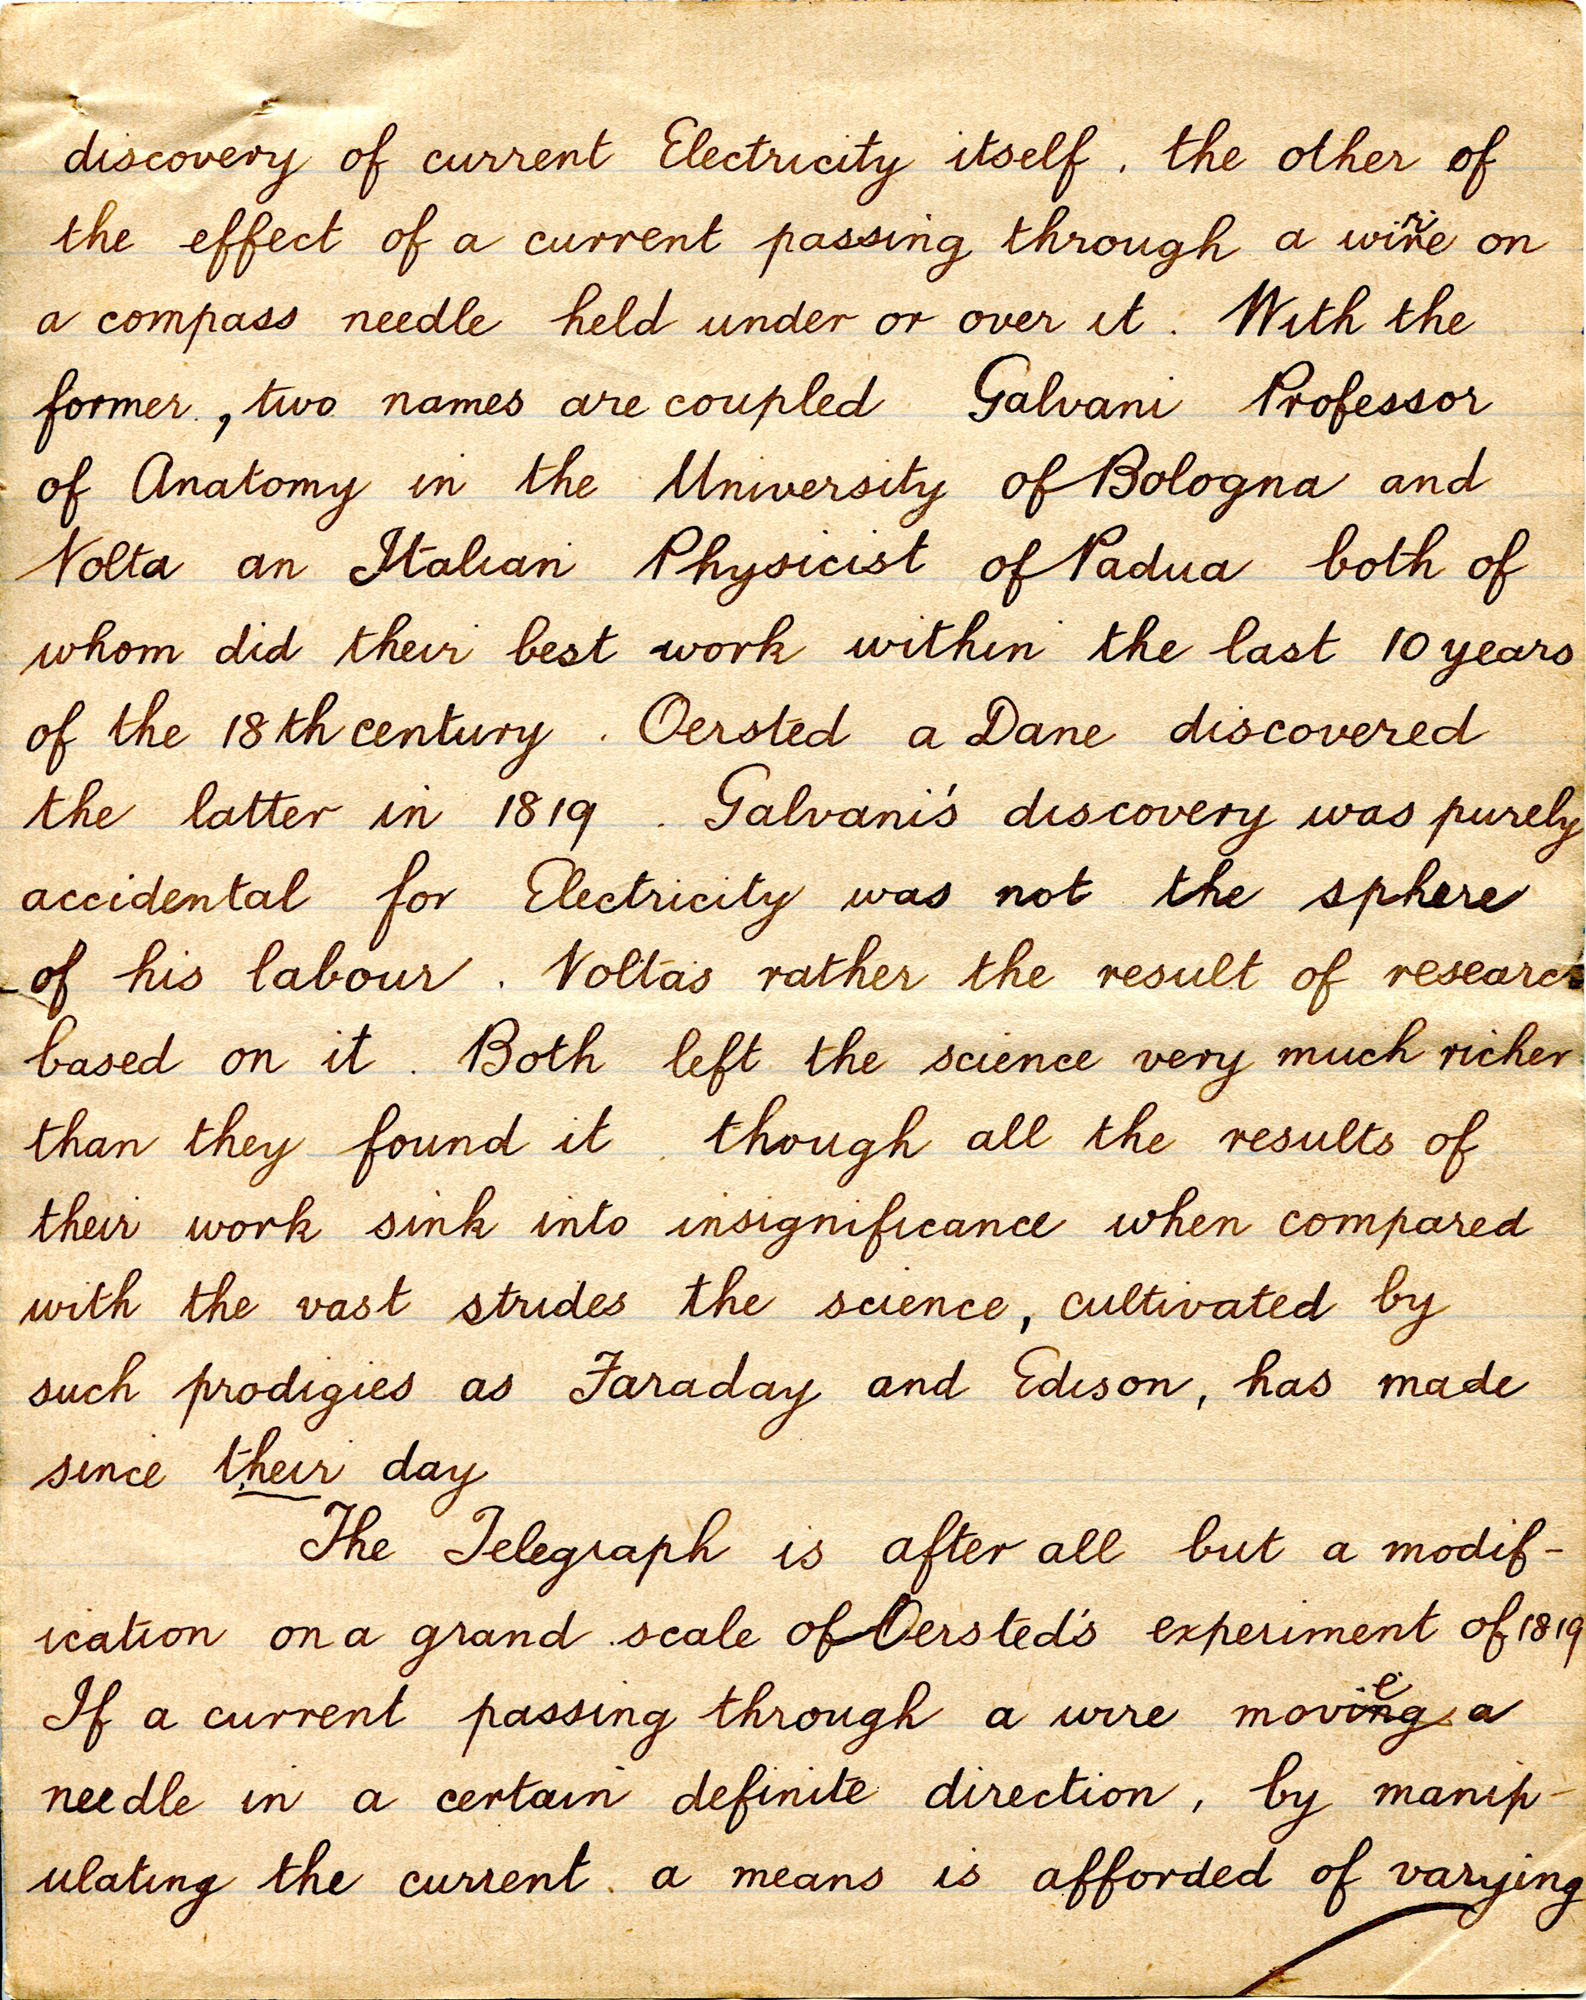 discovery of current Electricity itself. the other of
the effect of a current passing through a wire on
a compass needle held under or over it. With the
former, two names are coupled Galvani Professor
of Anatomy in the University of Bologna and
Volta an Italian Physicist of Padua both of
whom did their best work within the last 10 years
of the 18th century. Oersted a Dane discovered
the latter in 1819. Galvani's discovery was purely
accidental for Electricity was not the sphere
of his labour. Volta's rather the result of research
based on it. Both left the science very much richer
than they found it though all the results of
their work sink into insignificance when compared
with the vast strides the science, cultivated by
such prodigies as Faraday and Edison, has made
since their day
The Telegraph is after all but a modif-
ication on a grand scale of Oersted's experiment of 1819
If a current passing through a wire move a
needle in a certain definite direction, by manip-
ulating the current. a means is afforded of varying